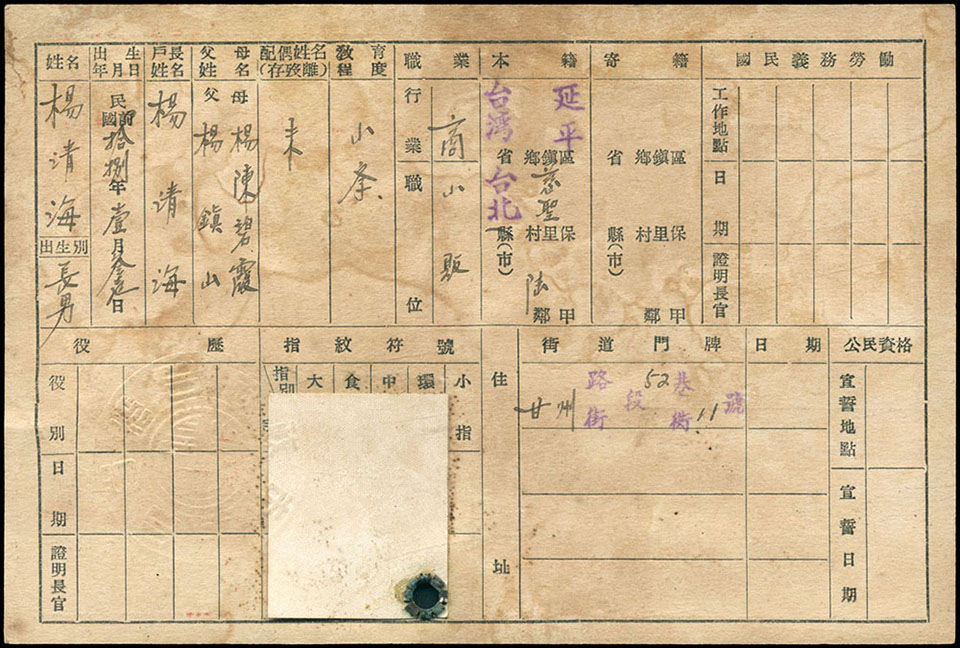 姓名
楊清海
出生別
長男
出生年月日
民國前拾捌年壹月日
戶長姓名
楊清海
父母姓名
父 楊鎮山
母 楊陳碧霞
配偶姓名(存歿離)
未
教育程度
小
職業
行業
商
職位
小販
本籍
台灣省台北縣(市)
延平
鄉鎮區
慈聖
村里保
陸
鄰甲
寄籍
省
縣(市)
鄉鎮區
村里保
鄰甲
國民義務勞働
工作地點
日期
證明長官
役歷
役別
日期
證明長官
指紋符號
指別
大
食
中
環
小指
住址
街道門牌
甘州
路街
段
52
巷衖
11
號
日期
公民資格
宣誓地點
宣誓日期